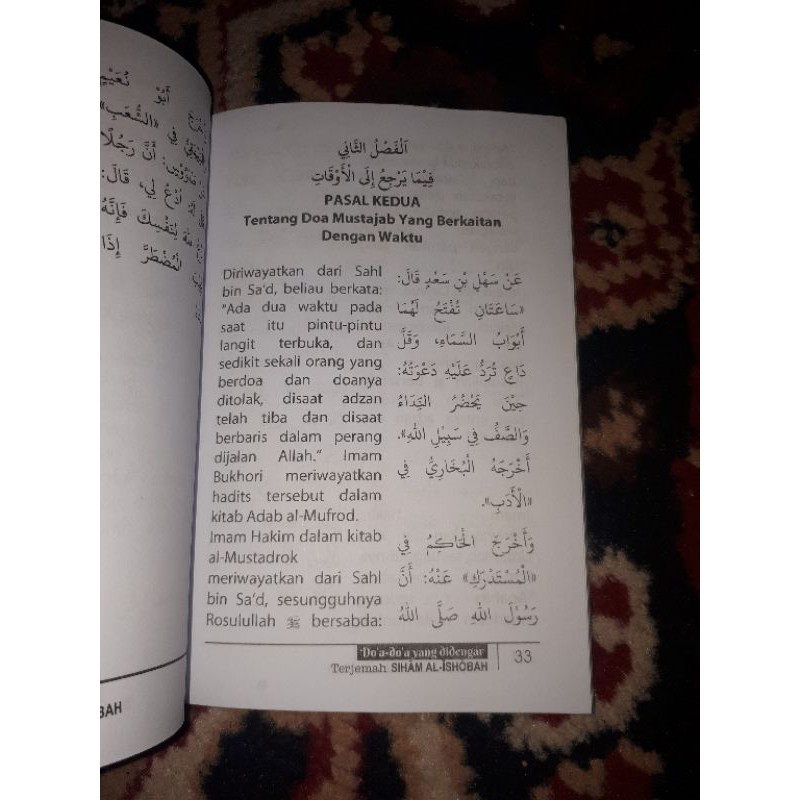 أَبُوْ نُعَيْمٍ
فِي «الشُّعَبِ»
أَنَّ رَجُلًا
اُدْعُ لِي، قَالَ:
لِنَفْسِكَ فَإِنَّهُ
الْمُضْطَرَّ إِذَا
BAH
اَلْفَصْلُ الثَّانِي
فِيْمَا يَرْجِعُ إِلَى الْأَوْقَاتِ
PASAL KEDUA
Tentang Doa Mustajab Yang Berkaitan
Dengan Waktu
Diriwayatkan dari Sahl
bin Sa'd, beliau berkata:
"Ada dua waktu pada
saat itu pintu-pintu
langit terbuka, dan
sedikit sekali orang yang
berdoa dan doanya
ditolak, disaat adzan
telah tiba dan disaat
berbaris dalam perang
dijalan Allah." Imam
Bukhori meriwayatkan
hadits tersebut dalam
kitab Adab al-Mufrod.
Imam Hakim dalam kitab
al-Mustadrok
meriwayatkan dari Sahl
bin Sa'd, sesungguhnya
Rosulullah ﷺ bersabda:
عَنْ سَهْلِ بْنِ سَعْدٍ قَالَ:
«سَاعَتَانِ تُفْتَحُ لَهُمَا
أَبْوَابُ السَّمَاءِ، وَقَلَّ
دَاعٍ تُرَدُّ عَلَيْهِ دَعْوَتُهُ:
حِيْنَ يَحْضُرُ النِّدَاءُ
وَالصَّفُّ فِي سَبِيْلِ اللهِ».
أَخْرَجَهُ الْبُخَارِيُّ فِي
«الْأَدَبِ».
وَأَخْرَجَ الْحَاكِمُ فِي
«الْمُسْتَدْرَكِ» عَنْهُ: أَنَّ
رَسُوْلَ اللهِ صَلَّى اللهُ
Do'a-do'a yang didengar
Terjemah SIHAM AL-ISHOBAH
33